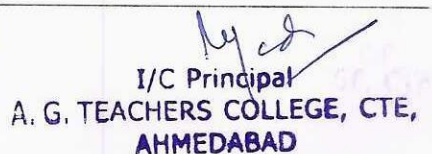 I/C Principal
A. G. TEACHERS COLLEGE, CTE,
AHMEDABAD